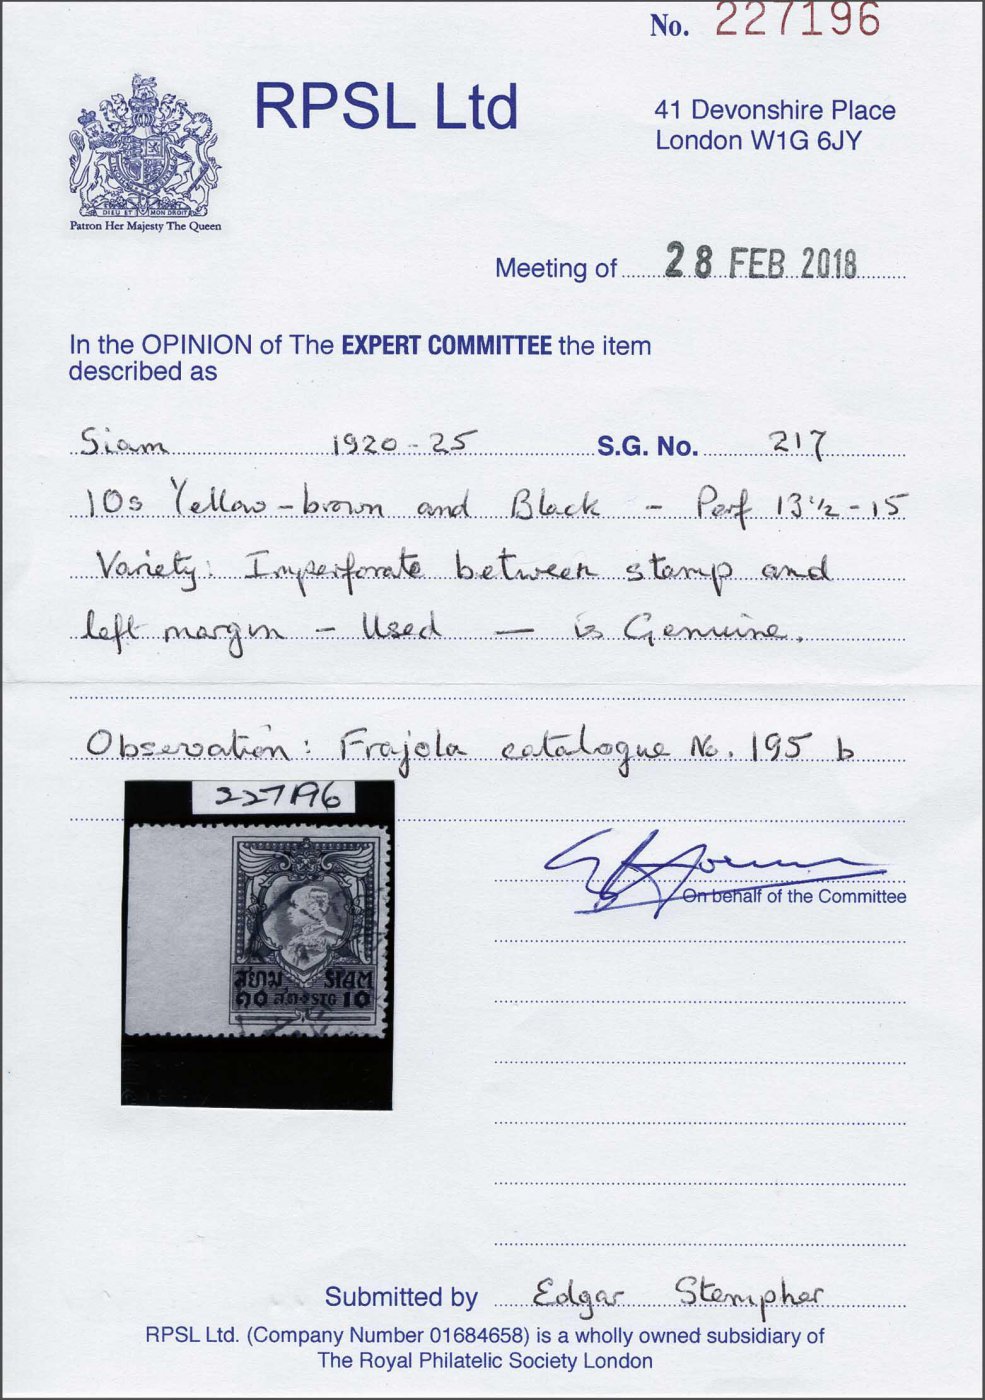 No. 227196
RPSL Ltd
41 Devonshire Place
London W1G 6JY
DIEU ET MON DROIT
Patron Her Majesty The Queen
Meeting of 28 FEB 2018
In the OPINION of The EXPERT COMMITTEE the item
described as
Siam 1920-25 S.G. No. 217
10s Yellow-brown and Black - Perf 13½-15
Variety: Imperforate between stamp and
left margin - Used — is Genuine.
Observation: Frajola catalogue No. 195 b
227196
สยาม SIAM
๑๐ สตางค์ STG 10
On behalf of the Committee
Submitted by Edgar Stempher
RPSL Ltd. (Company Number 01684658) is a wholly owned subsidiary of
The Royal Philatelic Society London